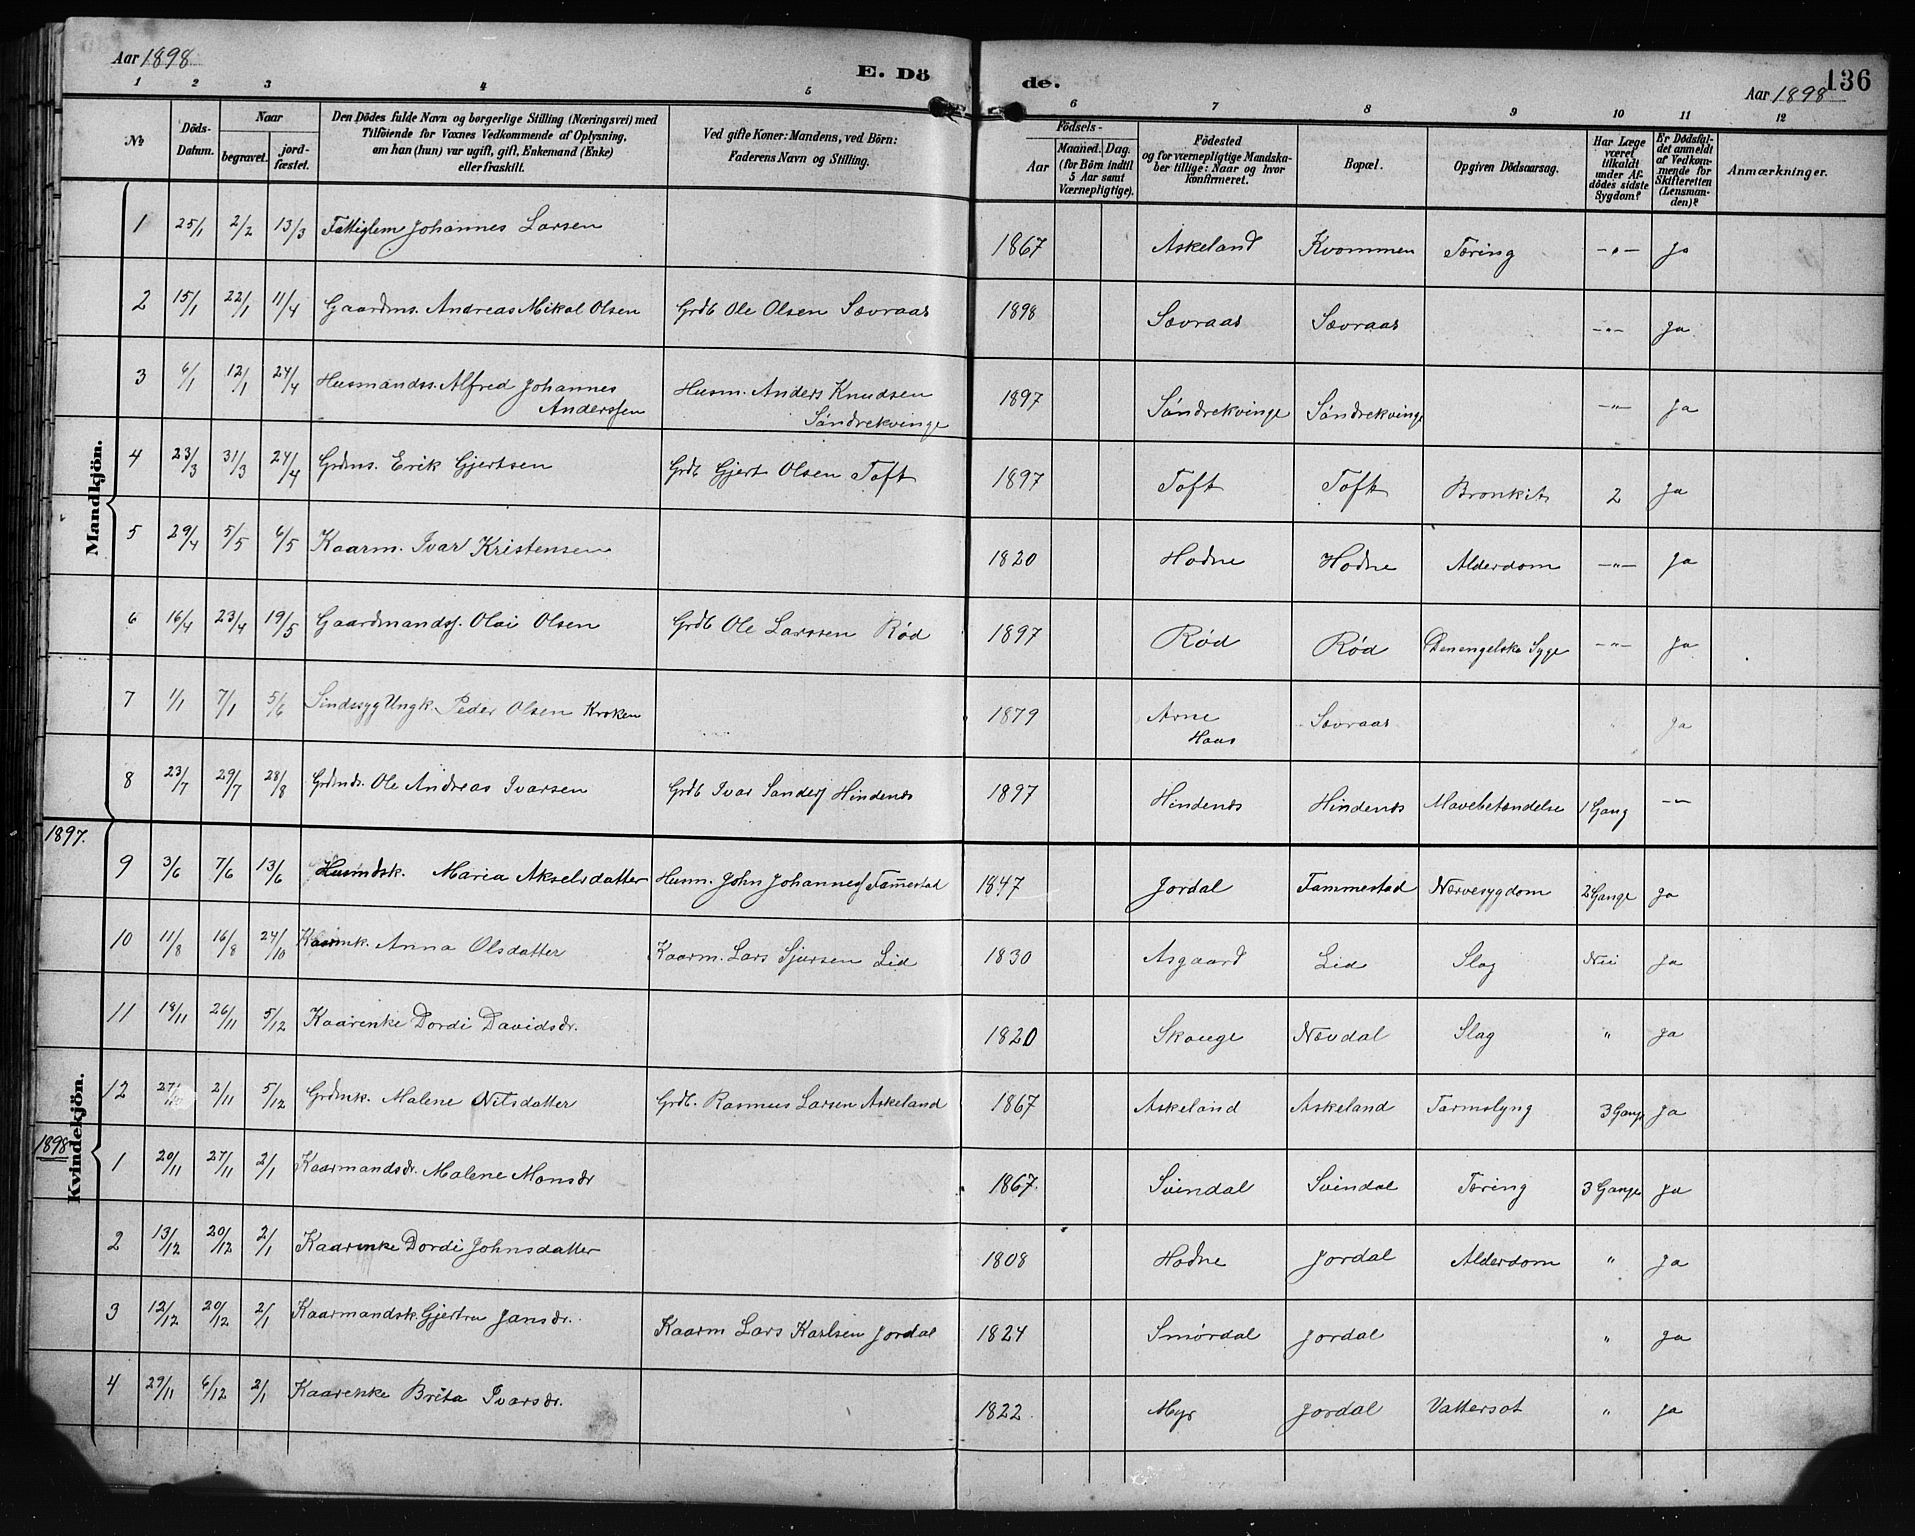 Aar 1898
E. Dö
de.
136
Aar 1898
1 2 3 4 5 6 7 8 9 10 11 12
No
Döds-Datum.
Naar
begravet.
jord-fæstet.
Den Dödes fulde Navn og borgerlige Stilling (Næringsvei) med
Tilföiende for Voxnes Vedkommende af Oplysning,
om han (hun) var ugift, gift, Enkemand (Enke)
eller fraskilt.
Ved gifte Koner: Mandens, ved Börn:
Faderens Navn og Stilling.
Födsels-
Aar
Maaned. Dag.
(for Börn indtil
5 Aar samt
Værnepligtige).
Födested
og for værnepligtige Mandska-
ber tillige: Naar og hvor
konfirmeret.
Bopæl.
Opgiven Dödsaarsag.
Har Læge
været
tilkaldt
under Af-
dödes sidste
Sygdom?
Er Dödsfal-
det anmeldt
af Vedkom-
mende for
Skifteretten
(Lensman-
den)?
Anmærkninger.
Mandkjön.
1 25/1 2/2 13/3 Fattiglem Johannes Larsen 1867 Askeland Kvommen Tæring -"- Ja
2 15/1 22/1 11/4 Gaardms. Andreas Mikal Olsen Grdb Ole Olsen Sævraas 1898 Sævraas Sævraas -"- Ja
3 6/1 12/1 24/4 Husmandss. Alfred Johannes Anderssen Husm. Anders Knudsen Søndrekvinge 1897 Søndrekvinge Søndrekvinge -"- Ja
4 23/3 31/3 24/4 Grdms. Erik Gjertsen Grdb Gjert Olsen Toft 1897 Toft Toft Bronkit 2 Ja
5 29/4 5/5 6/5 Kaarm. Ivar Kristensen 1820 Hodne Hodne Alderdom -"- Ja
6 16/4 23/4 19/5 Gaardmandss. Olai Olsen Grdb Ole Larssen Rød 1897 Rød Rød Den engelske Syge -"- Ja
7 1/1 7/1 5/6 Sindssyg Ungk. Peder Olsen Kroken 1879 Arne Haus Sævraas " Ja
8 23/7 29/7 28/8 Grdmds. Ole Andreas Ivarsen Grdb Ivar Sanders Hindenes 1897 Hindenes Hindenes Mavebetændelse 1 Gang -"-
1897.
Kvindekjön.
9 3/6 7/6 13/6 Husmdsk. Maria Akselsdatter Husm. John Johanness Fammestad 1847 Jordal Fammestad Nervesygdom 2 Gange Ja
10 11/8 16/8 24/10 Kaarmk. Anna Olsdatter Kaarm. Lars Sjursen Lid 1830 Asgaard Lid Slag Nei Ja
11 18/11 26/11 5/12 Kaarenke Dordi Davidsdr. 1820 Skauge Nævdal Slag " Ja
12 27/10 2/11 5/12 Grdmk. Malene Nilsdatter Grdb. Rasmus Larsen Askeland 1867 Askeland Askeland Tarmslyng 3 Gange Ja
1898
1 20/11 27/11 2/1 Kaarmandsdr. Malene Monsdr 1867. Svindal Svindal Tæring 3 Gange Ja
2 13/12 20/12 2/1 Kaarenke Dordi Johnsdatter 1808 Hodne Jordal Alderdom " Ja
3 12/12 20/12 2/1 Kaarmandsk. Gjertru Jansdr. Kaarm Lars Karlsen Jordal 1824 Smørdal Jordal " Ja
4 29/11 6/12 2/1 Kaarenke Brita Ivarsdr. 1822. Myr Jordal Vattersot " Ja